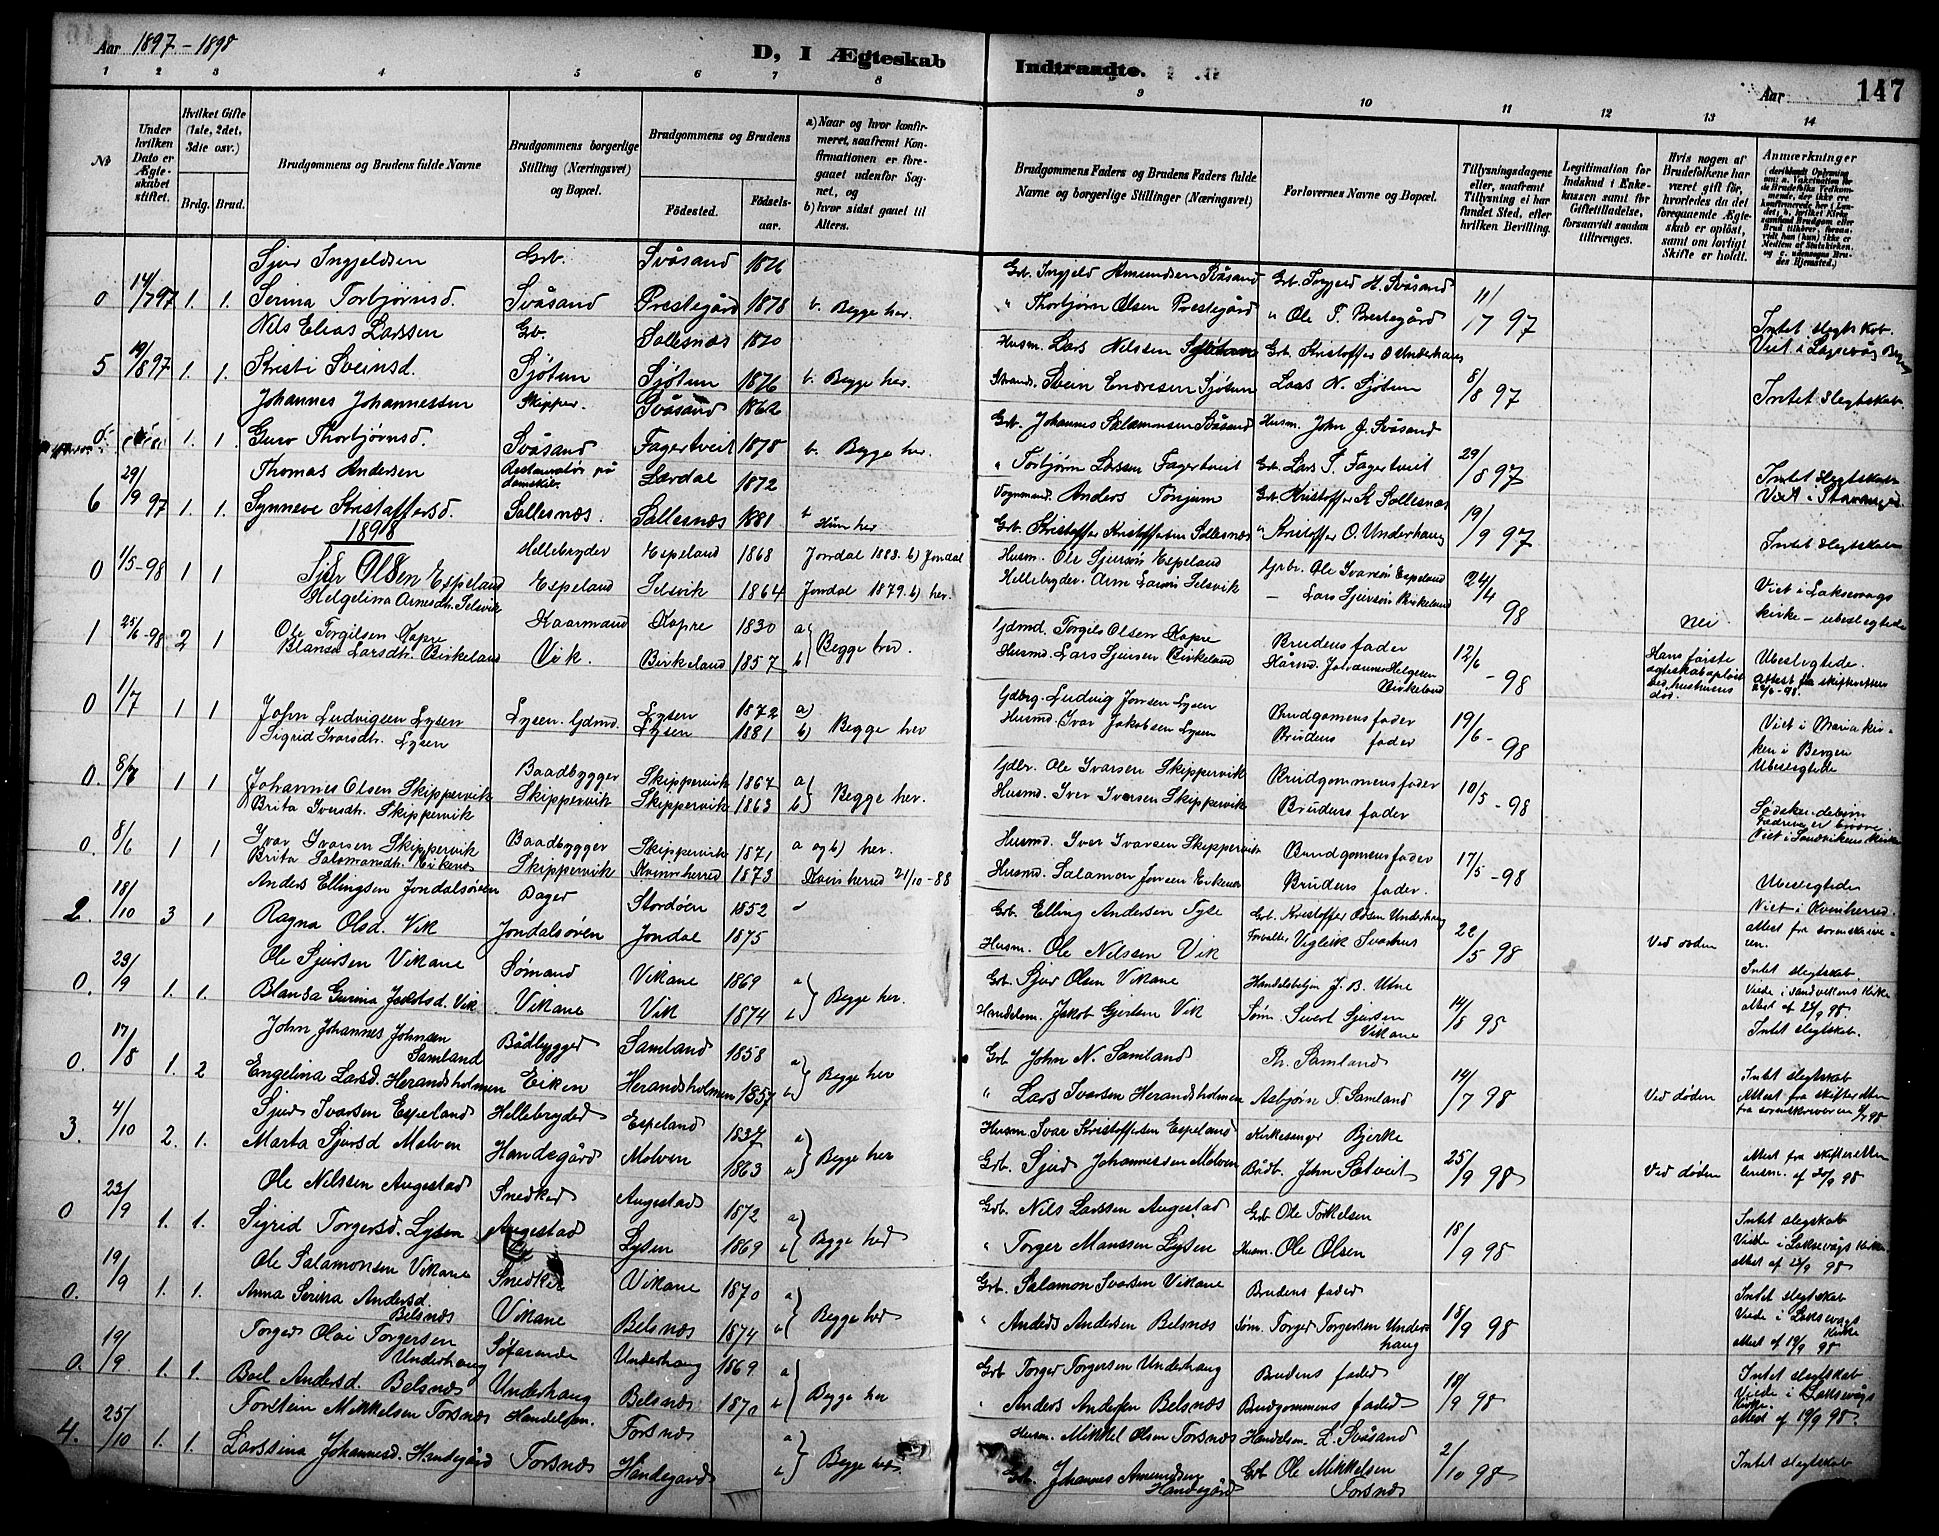 Aar 1897-1898
D, I Ægteskab
Indtraadte.
Aar
147
1 2 3 4 5 6 7 8
9 10 11 12 13 14
No
Under hvilken Dato er Ægteskabet stiftet.
Hvilket Gifte (1ste, 2det, 3die osv.)
Brdg. Brud.
Brudgommens og Brudens fulde Navne
Brudgommens borgerlige Stilling (Næringsvei) og Bopæl.
Brudgommens og Brudens
Födested.
Födselsaar.
a) Naar og hvor konfirmeret, saafremt Konfirmationen er foregaaet udenfor Sognet, og
b) hvor sidst gaaet til Alters.
Brudgommens Faders og Brudens Faders fulde Navne og borgerlige Stillinger (Næringsvei)
Forlovernes Navne og Bopæl.
Tillysningsdagene eller, saafremt Tillysning ei har fundet Sted, efter hvilken Bevilling.
Legitimation for Indskud i Enkekassen samt for Giftetilladelse, forsaavidt saadan tiltrænges.
Hvis nogen af Brudefolkene har været gift før, hvorledes da det foregaaende Ægteskab er oplöst, samt om lovligt Skifte er holdt.
Anmærkninger
Sjur Ingjeldsen Grb. Svåsand 1876 Grb. Ingjeld Amundsen Svåsand Grb. Torgjeld H. Svåsand
0 14/7 97 1. 1. Serina Torbjørnsd. Svåsand Prestegård 1878 b. Begge her. " Thorbjørn Olsen Prestegård " Ole T. Prestegård 11/7 97 Intet slegtskab.
Nils Elias Larssen Grb. Sollesnæs 1870 Husm. Lars Nilssen Grb. Kristoffer O Underhaug
5 19/8 97 1. 1. Kristi Sveinsd. Sjøtun Sjøtun 1876 b. Begge her. Strands. Svein Endresen Sjøtun Lars N. Sjøtun 8/8 97 Intet slegtskab.
Johannes Johannessen Skipper. Svåsand 1862 Grb. Johannes Salamonsen Svåsand Husm. John J. Svåsand
1. 1. Guro Thorbjørnsd. Svåsand Fagertveit 1878 b. Begge her. " Torbjørn Larsen Fagertveit Grb. Lars T. Fagertveit 29/8 97 Intet slegtskab
Thomas Andersen Restauratør på damskib. Lærdal 1872 Vognmand. Anders Tønjum Grb. Kristoffer K Sollesnæs
6 29/9 97 1. 1. Synneve Kristoffersd. Sollesnæs. Sollesnæs 1881 Hun her Grb. Kristoffer Kristoffersen Sollesnæs " Kristoffer O. Underhaug 19/9 97 Intet slegtskab
1898
0 1/5-98 1 1 Sjur Olsen Espeland Hellebryder Espeland 1868 Jondal 1883. b) Jondal Husm. Ole Sjursøn Espeland Grbr. Ole Ivarsøn Espeland 24/4 98 Viet i Laksevaags
Helgelina Arnesdtr. Selsvik Espeland Selsvik 1864 Jondal 1879. b) her. Hellebryder. Arne Larsøn Selsvik - Lars Sjursøn Birkeland kirke - ubeslegtede
1 25/6-98 2 1 Ole Torgilsen Kopre Haarmand Kopre 1830 a Begge her. Gdmd. Torgils Olsen Kopre Brudens fader 12/6-98 nei Ubeslegtede.
Blansa Larsdtr. Birkeland Vik. Birkeland 1857 b Husmd. Lars Sjursen Birkeland Hårmd. Johannes Helgesen Birkeland Hans første ægteskab opløst ved hustruens død. Attest fra skifteretten
0 1/7 1 1 John Ludvigsen Lysen Lysen. Gdmd. Lysen 1872 a) Begge her Gdbrg. Ludvig Jonsen Lysen Brudgomens fader 19/6-98 Viet i Mariakirken i Bergen
Sigrid Ivarsdtr. Lysen Lysen 1881 b) Husmd. Ivar Jakobsen Lysen Brudens fader Ubeslegtede
0. 8/7 1 1 Johannes Olsen Skippervik Baadbygger Skippervik 1867 a Begge her. Gdbr. Ole Ivarsen Skippervik Brudgommens fader 10/5-98
Brita Iversdtr. Skippervik Skippervik Skippervik 1863 b Husmd. Iver Ivarsen Skippervik Brudens fader Sødskendebørn Fædrene er brødre. Viet i Sandvikens kirke
0. 8/6 1 1 Ivar Ivarsen Skippervik Baadbygger Skippervik 1871 a og b) her. Husmd. Iver Ivarsen Skippervik Brudgomens fader 17/5-98 Ubeslegtede
Brita Salamonsdtr. Eikenes Skippervik Kvinnherred 1873 Kvinherred 21/10-88 Husmd. Salamon Jonsen Eikenes Brudens fader. Viet i Kvinherred.
2. 18/10 3 1 Anders Ellingsen Jondalsøren Bager Stordøen 1852 Grb. Elling Andersen Tyse Grb. Kristoffer Odsen Underhaug Attest fra sorenskriveren.
Ragna Olsd. Vik Jondalsøren Jondal 1875 Husm. Ole Nilssen Vik Forvalter Vigleik Svaahus 22/5 98 Ved døden
0. 23/9 1. 1. Ole Sjursen Vikane Sømand Vikane 1869 a Begge her. Grb. Sjur Olsen Vikane Handelsbetjen J. B. Utne Intet slegtskab.
Blansa Gurina Jakobsd. Vik Vikane Vik 1874 b Handelsm. Jakob Gjertsen Vik Søm. Sivert Sjursen Vikane 14/8 98 Viede i Sandvikens Kirke
0. 17/8 1. 2 John Johannes Johnsen Samland Bådbygger Samland 1858 a Begge her Grb John N. Samland Th. Samland Intet slegtskab.
Engelina Larsd. Herandsholmen Eiken Herandsholmen 1857 b " Lars Ivarsen Herandsholmen Asbjørn T. Samland 14/7 98 Ved døden Attest fra skifteretten fra sorenskriveren
3. 4/10 2. 1. Sjur Ivarsen Espeland Hellebryder Espeland 1837 a Begge her Husm Ivar Kristoffersen Espeland Kirkesanger Bjerke
Marta Sjursd Molven Handegård Molven 1863 b Grb. Sjur Johannessen Molven Bådb. John Sætveit 25/9 98 Ved døden Attest fra skifteretten
0 23/9 1. 1. Ole Nilssen Augestad Snedker Augestad 1872 a Begge her Grb. Nils Larssen Augestad Grb. Ole Torkelsen Intet slegtskab
Sigrid Torgersd. Lysen Augestad Lysen 1869 b " Torger Monssen Lysen Husm. Ole Olsen 18/9 98 Viede i Laksevågs Kirke.
0. 19/9 1. 1. Ole Salamonsen Vikane Snedker Vikane 1870 a Begge her Grb. Salamon Ivarsen Vikane Brudens fader Intet slegtskab
Anna Serina Andersd. Belsnæs Vikane Belsnæs 1874 b " Anders Andersen Belsnæs Søm. Torger Torgersen Underhaug 18/9 98 Viede i Laksevågs Kirke Attest af 19/9 98
0. 19/9 1. 1. Torger Olai Torgersen Underhaug Søfarende Underhaug 1869 a Begge her Grb Torger Torgersen Underhaug Brudens fader Intet slegtskab
Boel Andersd. Belsnæs Underhaug Belsnæs 1870 b " Anders Andersen Belsnæs Brudgommens fader 18/9 98 Viede i Laksevågs Kirke. Attest af 19/9 98.
4. 25/10 1. 1. Torstein Mikkelsen Torsnæs Handelsm. Torsnæs a Begge her. Husm. Mikkel Olsen Torsnæs Handelsm. L. Svåsand
Larssina Johannesd. Handegård Torsnæs Håndegård b Grb. Johannes Amundsen Handegård Grb Ole Mikkelsen Torsnæs 2/10 98 Intet slegtskab